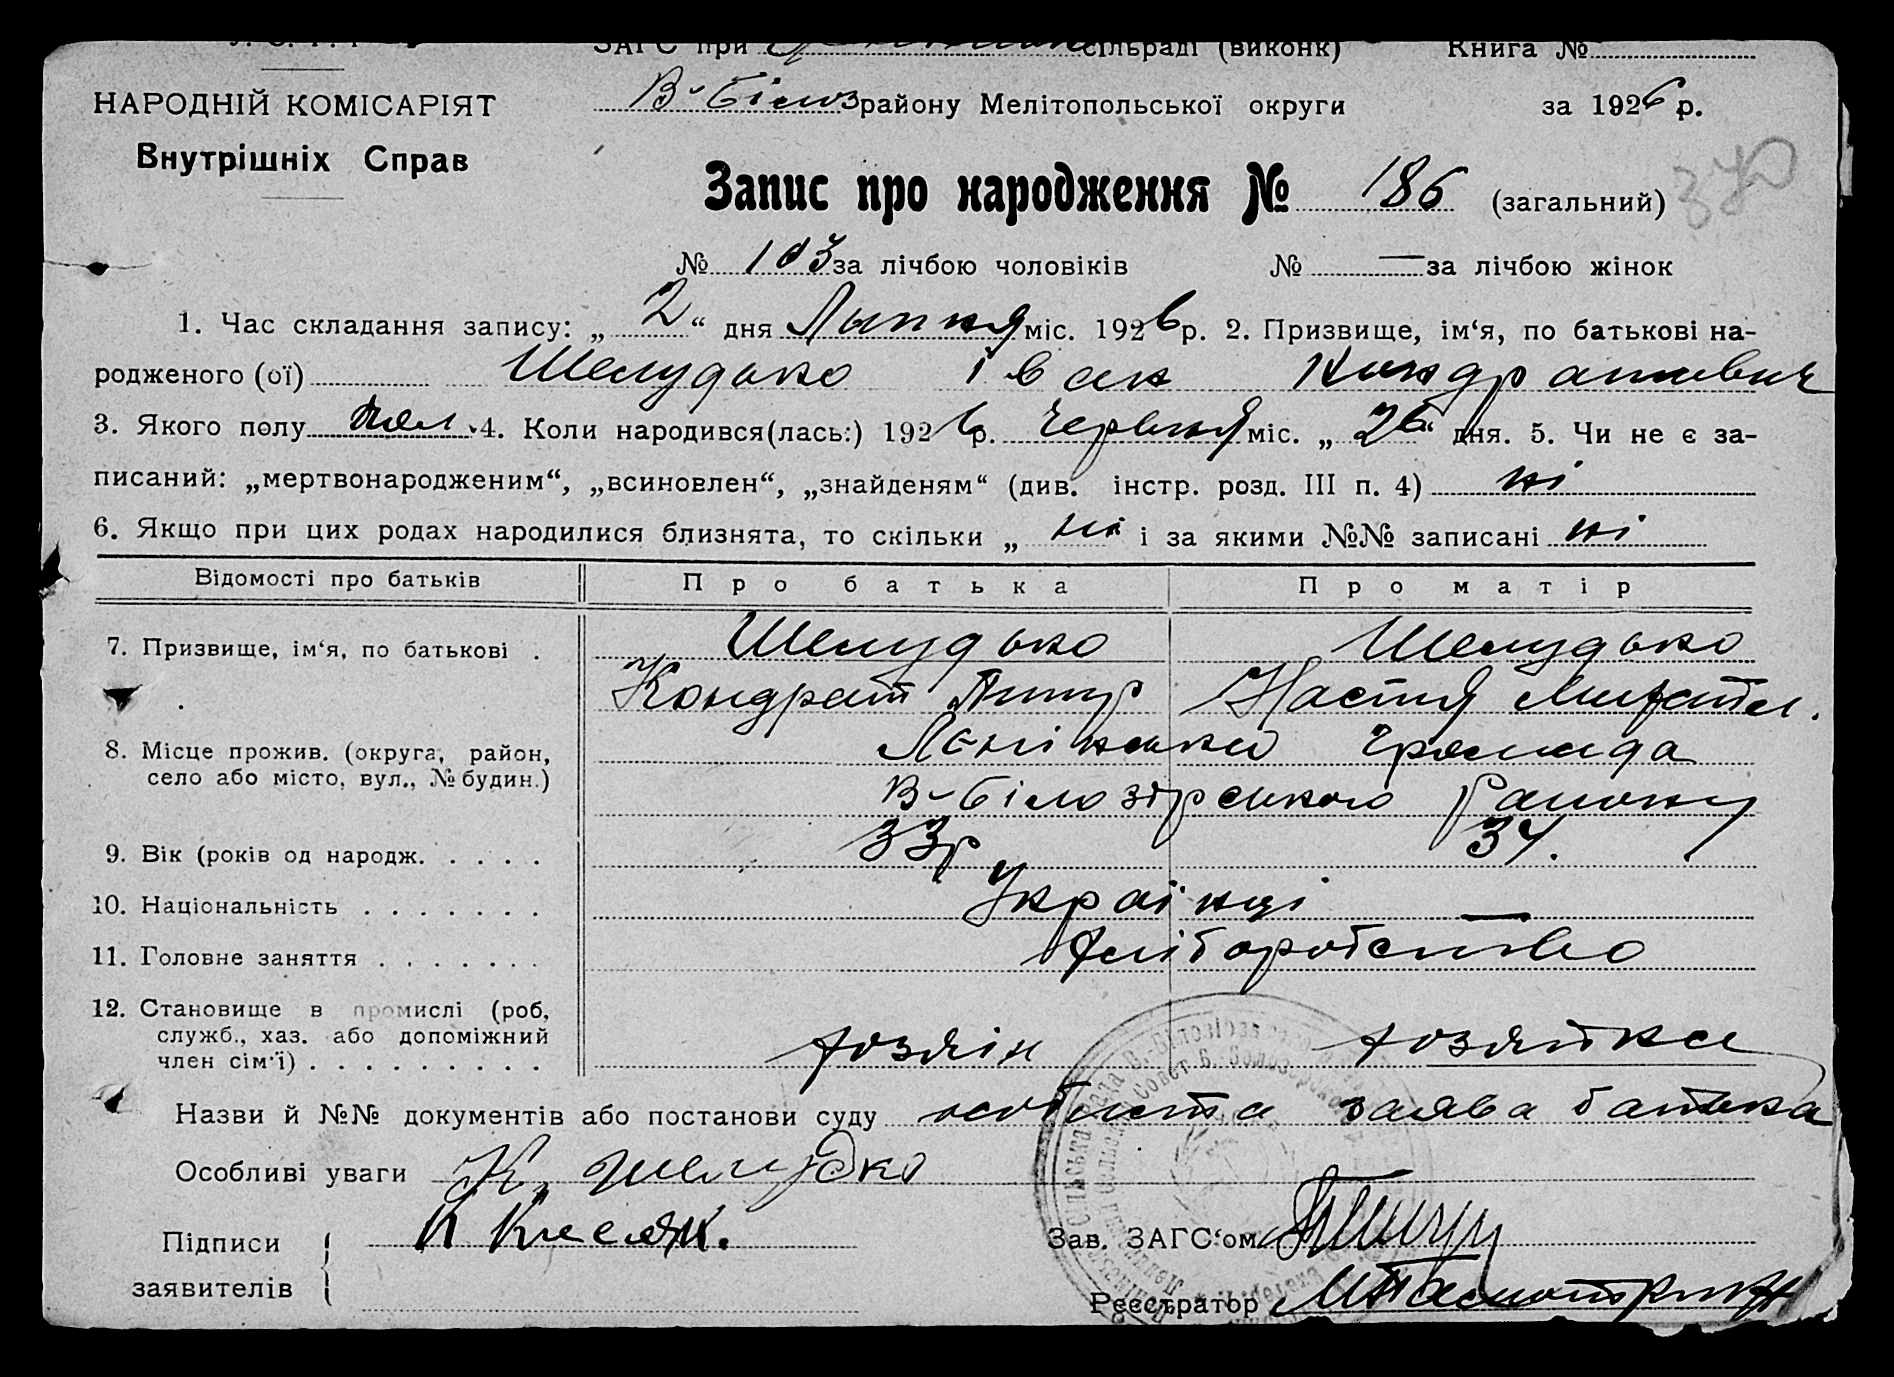 ЗАГС при сільраді (виконк) Книга №
НАРОДНІЙ КОМІСАРІЯТ
В-Білозрайону Мелітопольської округи за 1926 р.
Внутрішніх Справ
Запис про народження № 186 (загальний)
№ 103 за лічбою чоловіків № — за лічбою жінок
1. Час складання запису: „ 2 “ дня Липня міс. 1926 р. 2. Призвище, ім‘я, по батькові на-
родженого (ої) Шелудько Іван Кондратович
3. Якого полу чол. 4. Коли народився(лась:) 1926 р. Червня міс. „ 26 “ дня. 5. Чи не є за-
писаний: „мертвонародженим“, „всиновлен“, „знайденям“ (див. інстр. розд. III п. 4) ні
6. Якщо при цих родах народилися близнята, то скільки „ ні і за якими №№ записані ні
Відомості про батьків Про батька Про матір
7. Призвище, ім‘я, по батькові . Шелудько Шелудько
Кондрат Настя
8. Місце прожив. (округа, район, громада
село або місто, вул., № будин.) В-Білозірського району
9. Вік (років од народж. . . . . 33р 34.
10. Національність . . . . . . . Українці —
11. Головне заняття . . . . . . . хліборобство
12. Становище в промислі (роб,
служб., хаз. або допоміжний хозяін хозяйка
член сім‘ї) . . . . . . . . .
Назви й №№ документів або постанови суду особиста заява батька
Особливі уваги К. Шелудко
Підписи Зав. ЗАГС‘ом
заявителів Реєстратор